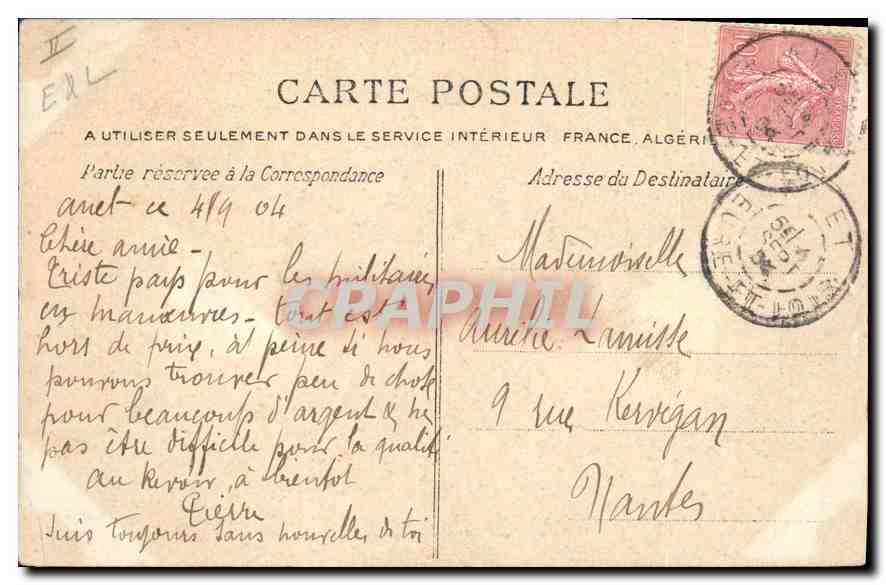 II
E&L
CARTE POSTALE
A UTILISER SEULEMENT DANS LE SERVICE INTÉRIEUR FRANCE, ALGÉRIE
Partie réservée à la Correspondance
Adresse du Destinataire
anet ce 4/9 04
Chère amie -
Triste pays pour les militaires
en manœuvres - tout est
hors de prix, à peine si nous
pouvons trouver peu de chose
pour beaucoup d'argent & ne
pas être difficile pour la qualité
au Revoir, à bientôt
Pierre
Suis toujours sans nouvelles de toi
Mademoiselle
Aurélie Lamisse
9 rue Kervégan
Nantes
CPAPHIL
ANET
EURE-ET-LOIR